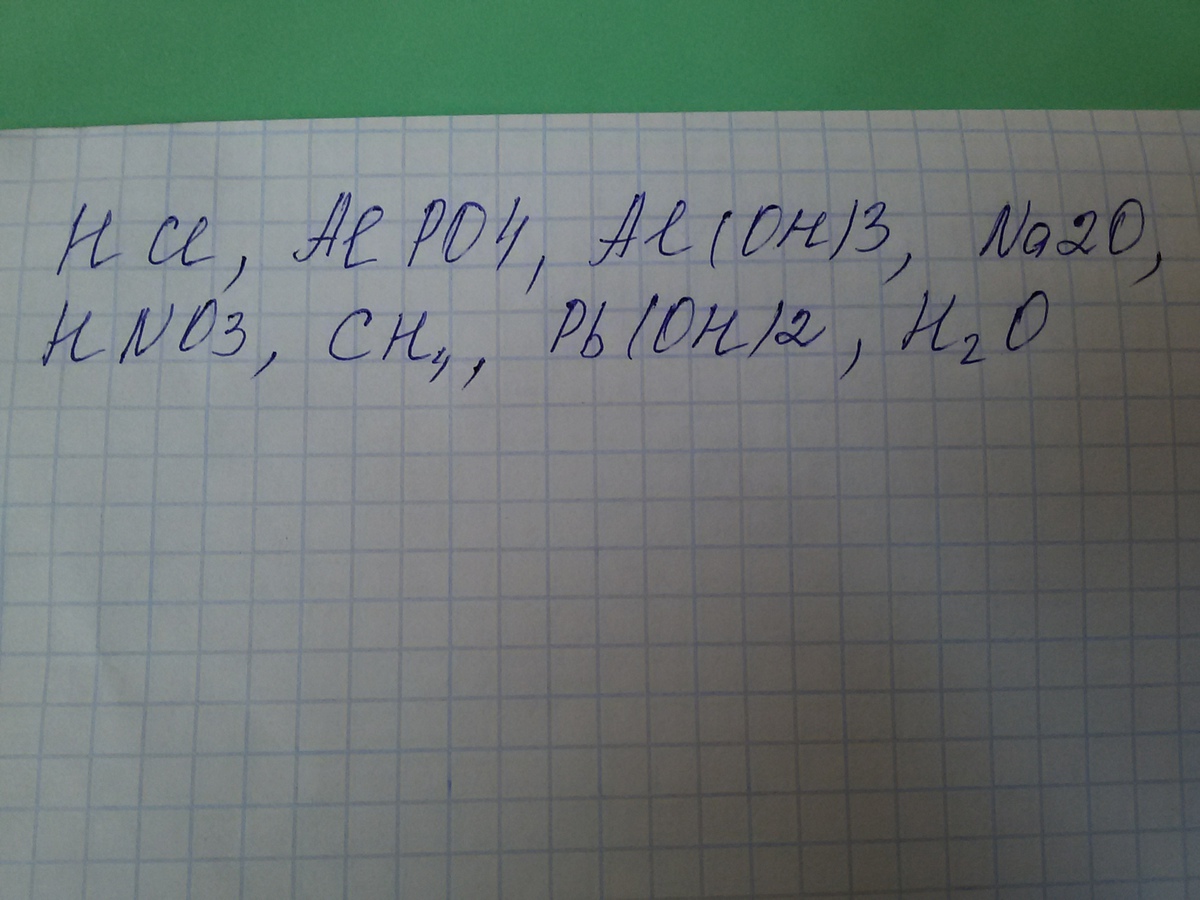 HCl, AlPO4, Al(OH)3, Na2O,
HNO3, CH₄, Pb(OH)2, H₂O